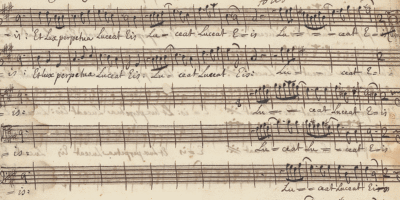 is: Et Lux perpetua Luceat Eis Lu - - ceat Luceat E - is Lu - - - ceat E - is
is: Et Lux perpetua Luceat Eis: Lu - ceat Luceat Eis: Lu - - - ceat Eis
- is: Lu - - - ceat Luceat E - is
- is: Lu - - - ceat Luceat E - is
- is: Lu - - - ceat Luceat E - is